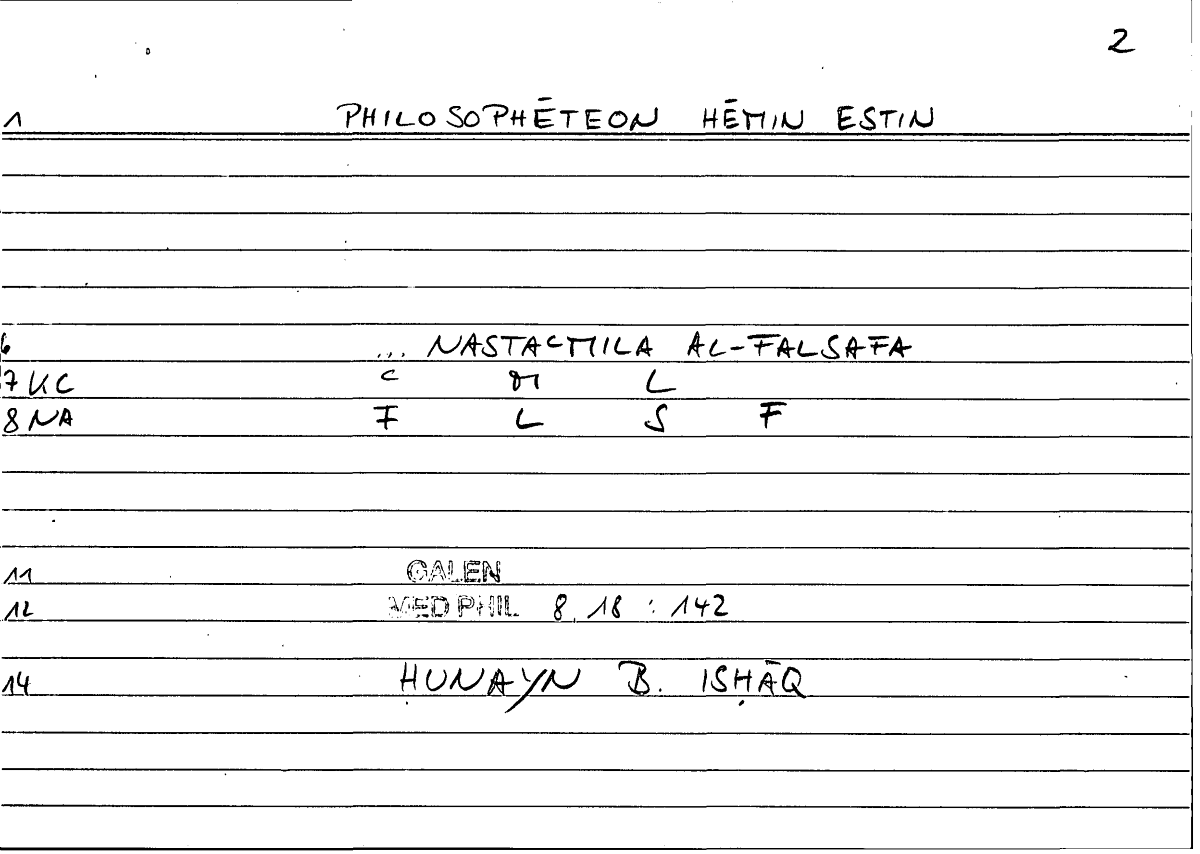 2
1 PHILOSOPHĒTEON HĒMIN ESTIN
6 ... NASTAᶜMILA AL-FALSAFA
7 VC ᶜ M L
8 NA F L S F
11 GALEN
12 MED PHIL 8, 18 : 142
14 ḤUNAYN B. ISḤĀQ